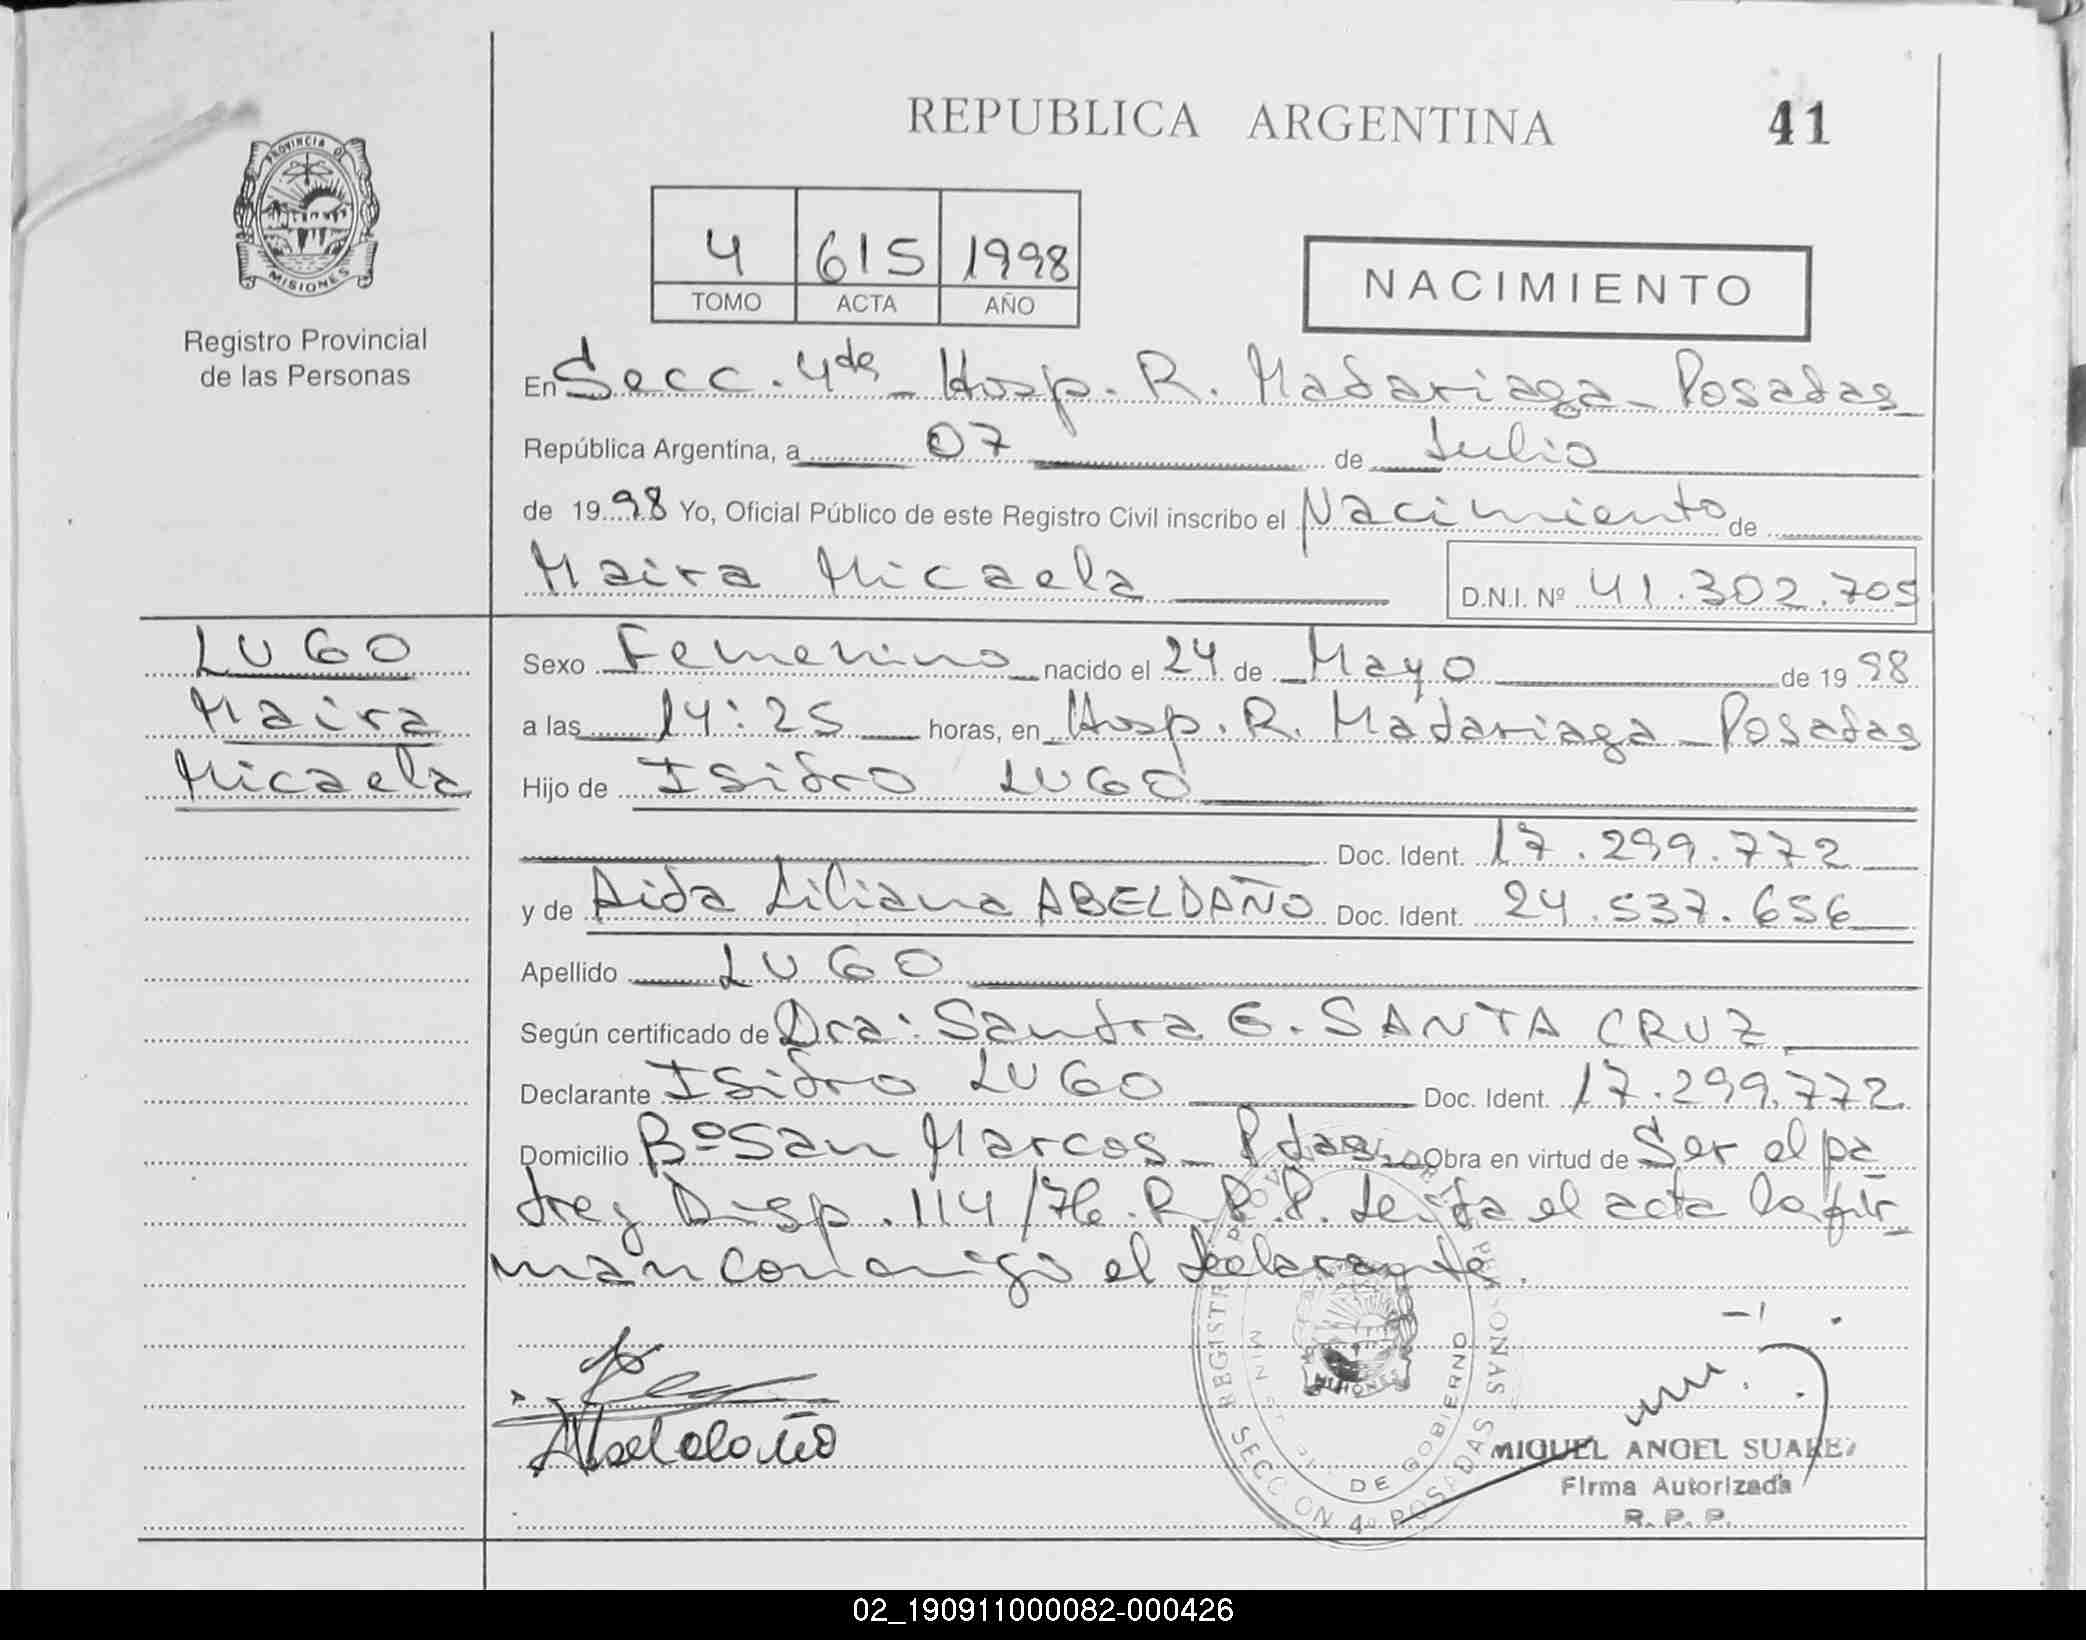 REPUBLICA ARGENTINA
41
PROVINCIA DE
MISIONES
Registro Provincial
de las Personas
4 615 1998
TOMO ACTA AÑO
NACIMIENTO
En Secc. 4da - Hosp. R. Madariaga - Posadas
República Argentina, a 07 de Julio
de 1998 Yo, Oficial Público de este Registro Civil inscribo el Nacimiento de
Maira Micaela D.N.I. Nº 41.302.705
LUGO
Maira
Micaela
Sexo Femenino nacido el 24 de Mayo de 1998
a las 14:25 horas, en Hosp. R. Madariaga - Posadas
Hijo de Isidro LUGO
Doc. Ident. 17.299.772
y de Aida Liliana ABELDAÑO Doc. Ident. 24.537.656
Apellido LUGO
Según certificado de Dra: Sandra E. SANTA CRUZ
Declarante Isidro LUGO Doc. Ident. 17.299.772
Domicilio Bº San Marcos - Pdas. Obra en virtud de Ser el pa
dre y Disp. 114/76. R.P.P. Leida el acta la fir
man conmigo el declarante.
Abeldaño
MISIONES
DE GOBIERNO
SECCION 4ª POSADAS
MIGUEL ANGEL SUAREZ
Firma Autorizada
R. P. P.
02_190911000082-000426